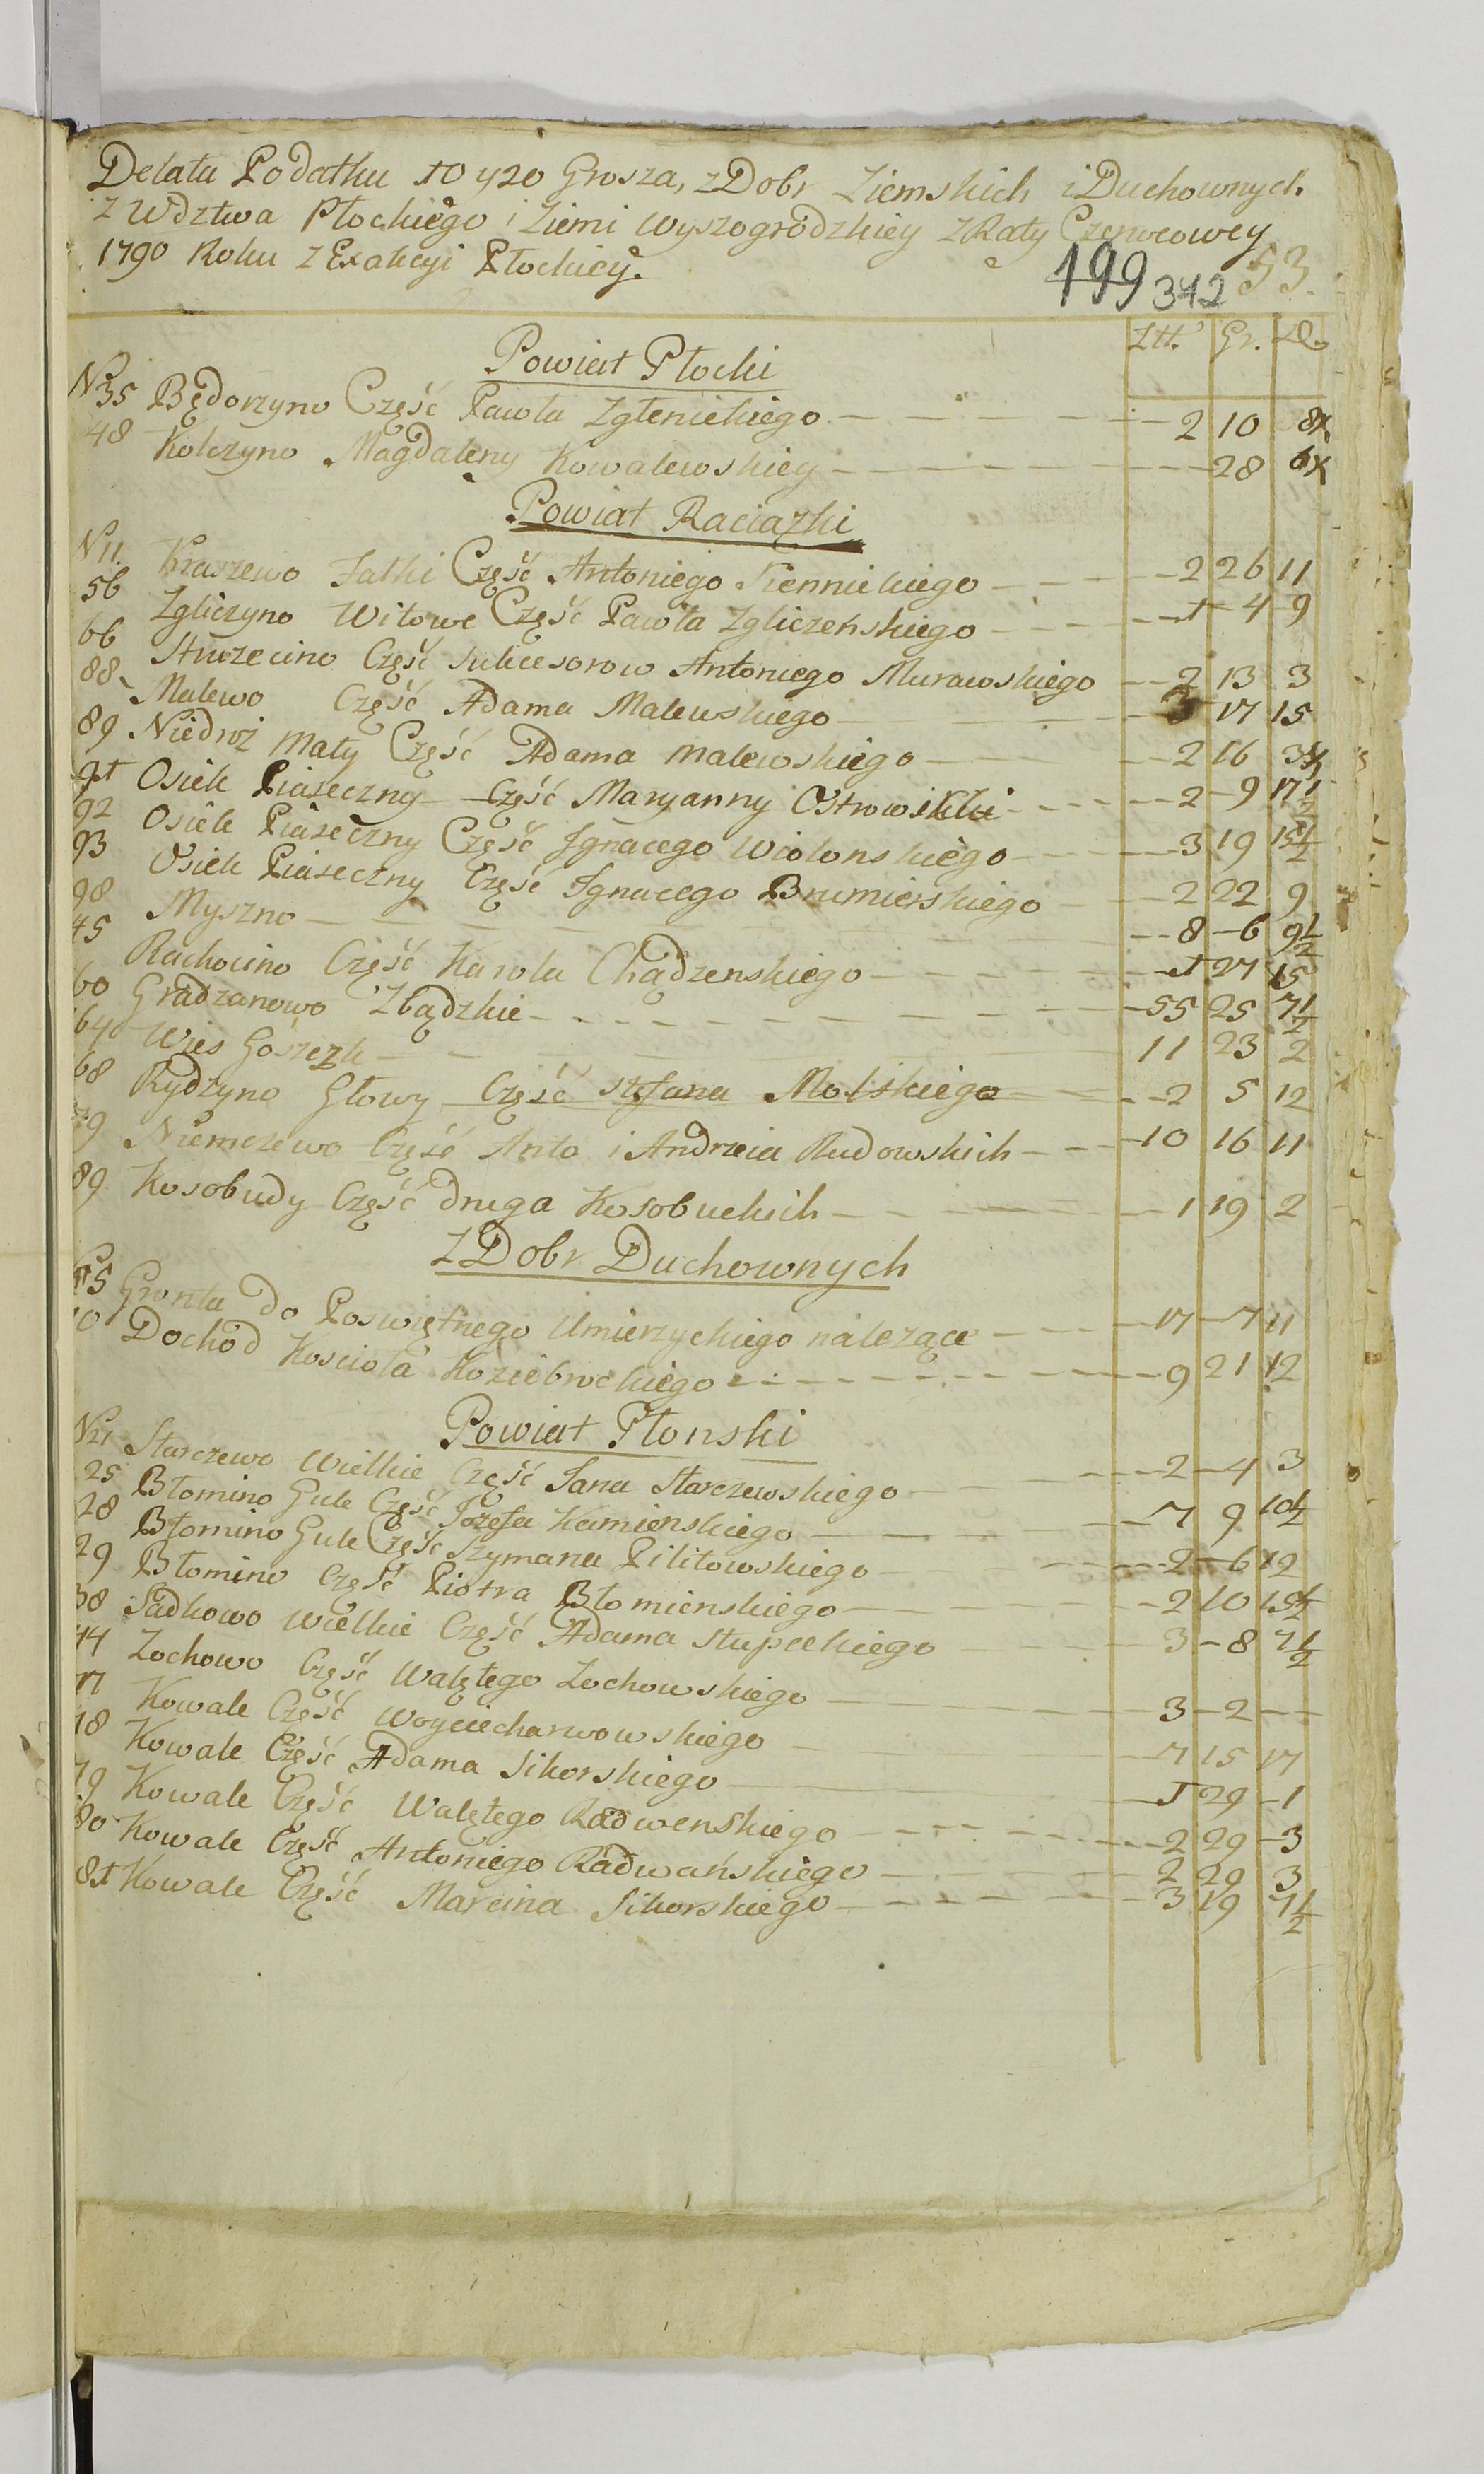 Delata Podatku 10 y 20 Grosza, z Dobr Ziemskich i Duchownych
z Wdztwa Płockiego i Ziemi Wyszogrodzkiey z Raty Czerwcowey
1790 Roku z Exakcyi Płockiey.
199 342 53.
Złł. Gr. D.
Powiat Płocki
N 35 Będorzyno Część Pawła Zglenickiego 2 10 8
48 Kolczyno Magdaleny Kowalewskiey 28 6
Powiat Raciązki
N 11. Kraszewo Falki Część Antoniego Niennickiego 2 26 11
56 Zgliczyno Witowe Część Pawła Zgliczenskiego 1 4 9
66 Strzezino Część Sukcesorow Antoniego Murawskiego 2 13 3
88 Malewo Część Adama Malewskiego 3 17 15
89 Niedroż Mały Część Adama Malewskiego 2 16 3
91 Osiek Piaseczny Część Maryanny Ostrowskiei 2 9 17 1/2
92 Osiek Piaseczny Część Jgnacego Wiolonskiego 3 19 15 1/2
93 Osiek Piaseczny Część Jgnacego Brumierskiego 2 22 9
98 Myszno 8 6 9 1/2
45 Rachocino Część Karola Chądzenskiego 1 27 15
60 Gradzanowo Zbądzkie 55 25 7 1/2
64 Wies Goszczk 11 23 2
68 Rydzyno Głowy Część Stefana Molskiego 2 5 12
79 Niemczewo Część Anto i Andrzeia Rudowskich 10 16 11
89 Kosobudy Część druga Kosobuckich 1 19 2
Z Dobr Duchownych
5 Gronta do Poswiętnego Umierzyckiego należące 17 7 11
0 Dochod Kosciola Koziebrockiego 9 21 12
Powiat Płonski
N 21 Starczewo Wielkie Część Jana Starczewskiego 2 4 3
25 Błomino Gule Część Jozefa Kamienskiego 7 9 10 1/2
28 Błomino Gule Część Szymana Pilitowskiego 2 6 12
29 Błomino Część Piotra Błomienskiego 2 10 15 1/2
38 Sadkowo Wielkie Część Adama Słupeckiego 3 8 7 1/2
44 Zochowo Część Walętego Zochowskiego 3 2
77 Kowale Część Woyciecharwowskiego 7 15 17
78 Kowale Część Adama Sikorskiego 1 29 1
79 Kowale Część Walętego Radwenskiego 2 29 3
80 Kowale Część Antoniego Radwańskiego 2 29 3
81 Kowale Część Marcina Sikorskiego 3 19 7 1/2